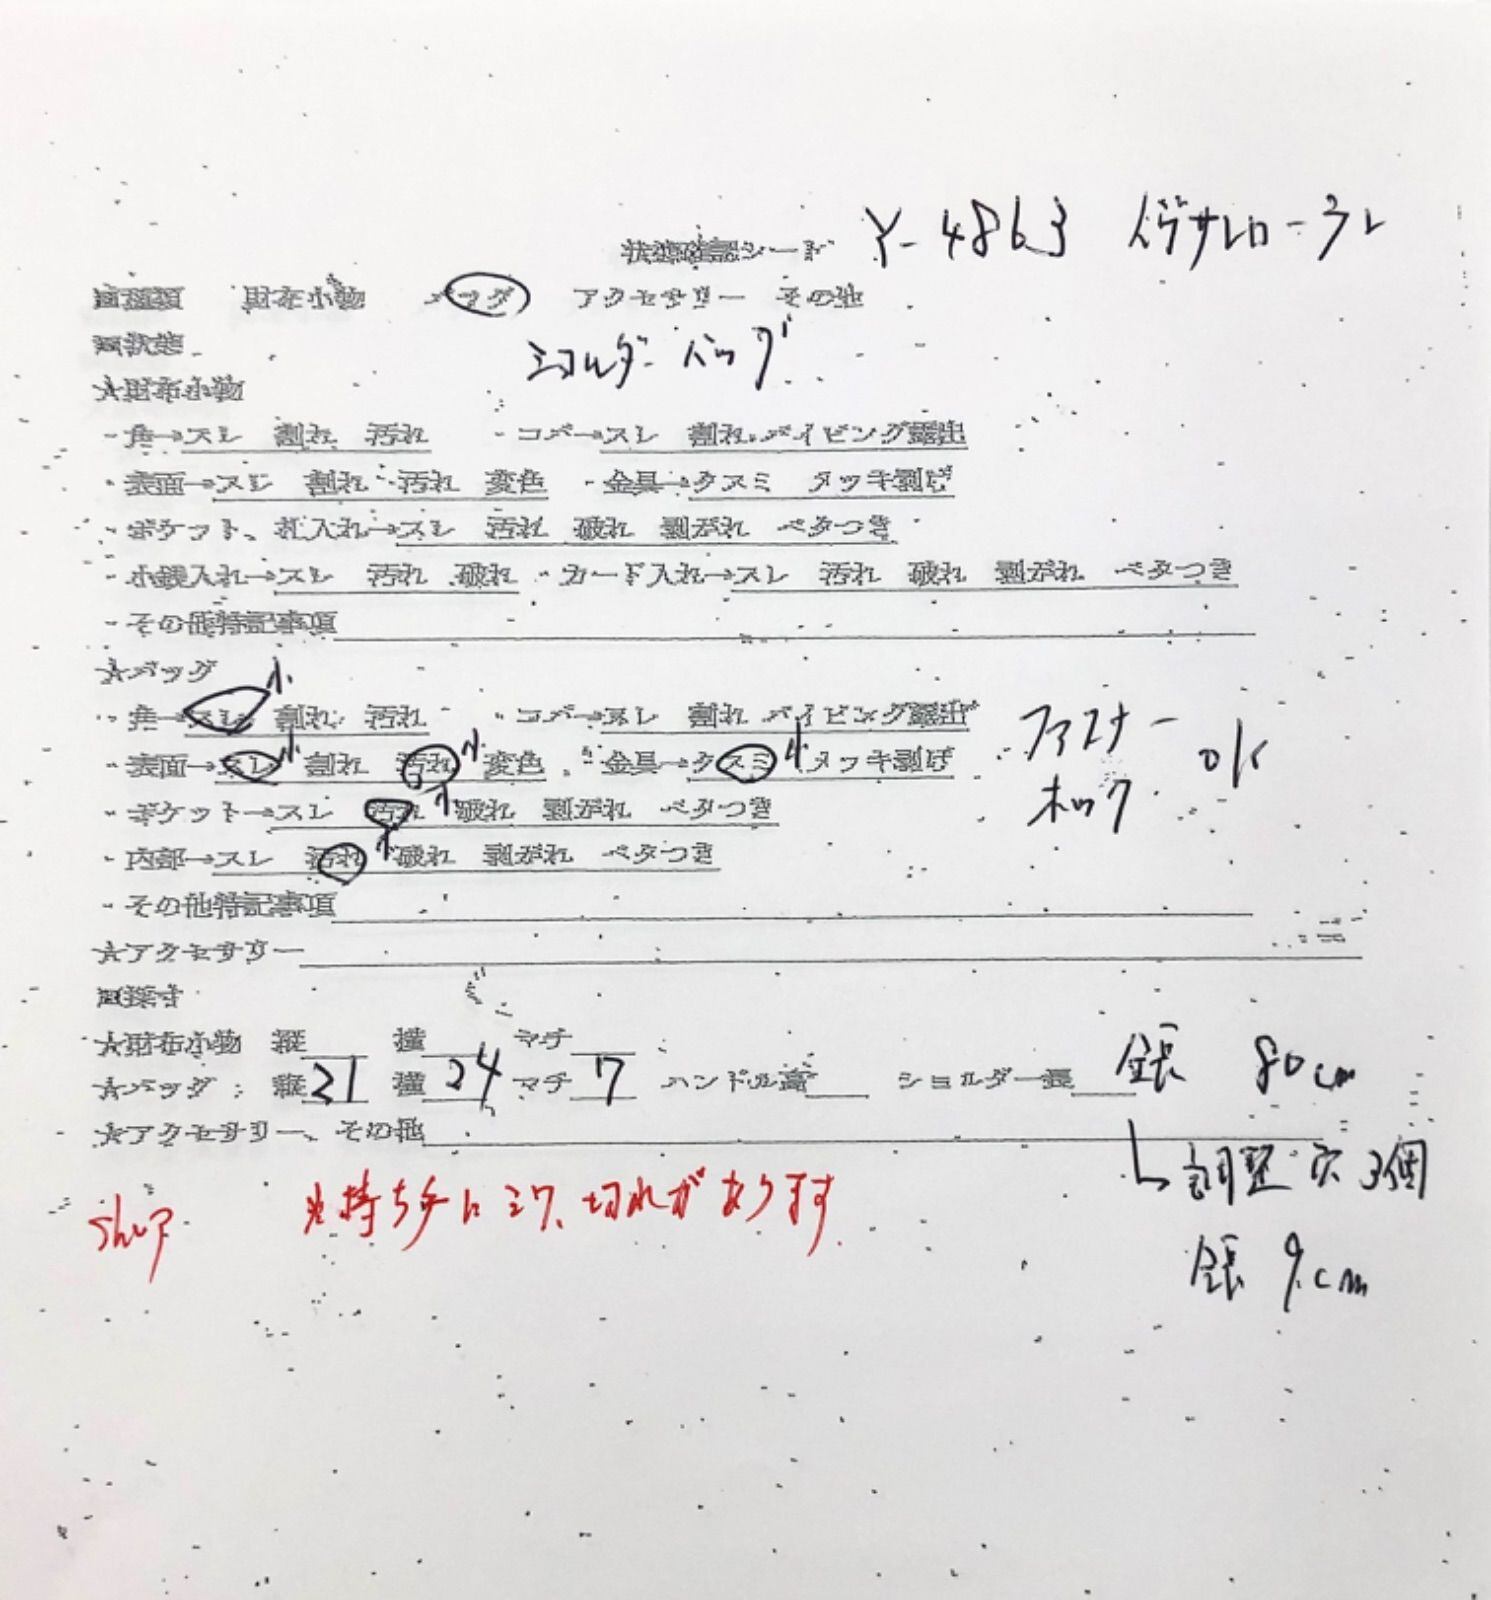 状態確認シート Y-4863 イヴサンローラン
■種類 財布小物 バッグ アクセサリー その他
■状態
ショルダーバッグ
★財布小物
・角→スレ 割れ 汚れ ・コバ→スレ 割れ パイピング露出
・表面→スレ 割れ 汚れ 変色 ・金具→クスミ メッキ剥げ
・ポケット、札入れ→スレ 汚れ 破れ 剥がれ ベタつき
・小銭入れ→スレ 汚れ 破れ ・カード入れ→スレ 汚れ 破れ 剥がれ ベタつき
・その他特記事項
★バッグ
小
・角→スレ 割れ 汚れ ・コバ→スレ 割れ パイピング露出
ファスナー
・表面→スレ 小 割れ 汚れ 小 変色 ・金具→クスミ 小 メッキ剥げ
ホック OK
・ポケット→スレ 汚れ 小 破れ 剥がれ ベタつき
・内部→スレ 汚れ 小 破れ 剥がれ ベタつき
・その他特記事項
★アクセサリー
■採寸
★財布小物 縦 横 マチ
★バッグ 縦21 横24 マチ7 ハンドル高 ショルダー長 全長 80cm
★アクセサリー、その他
調整穴3個
全長 9cm
※持ち手にシワ、切れがあります